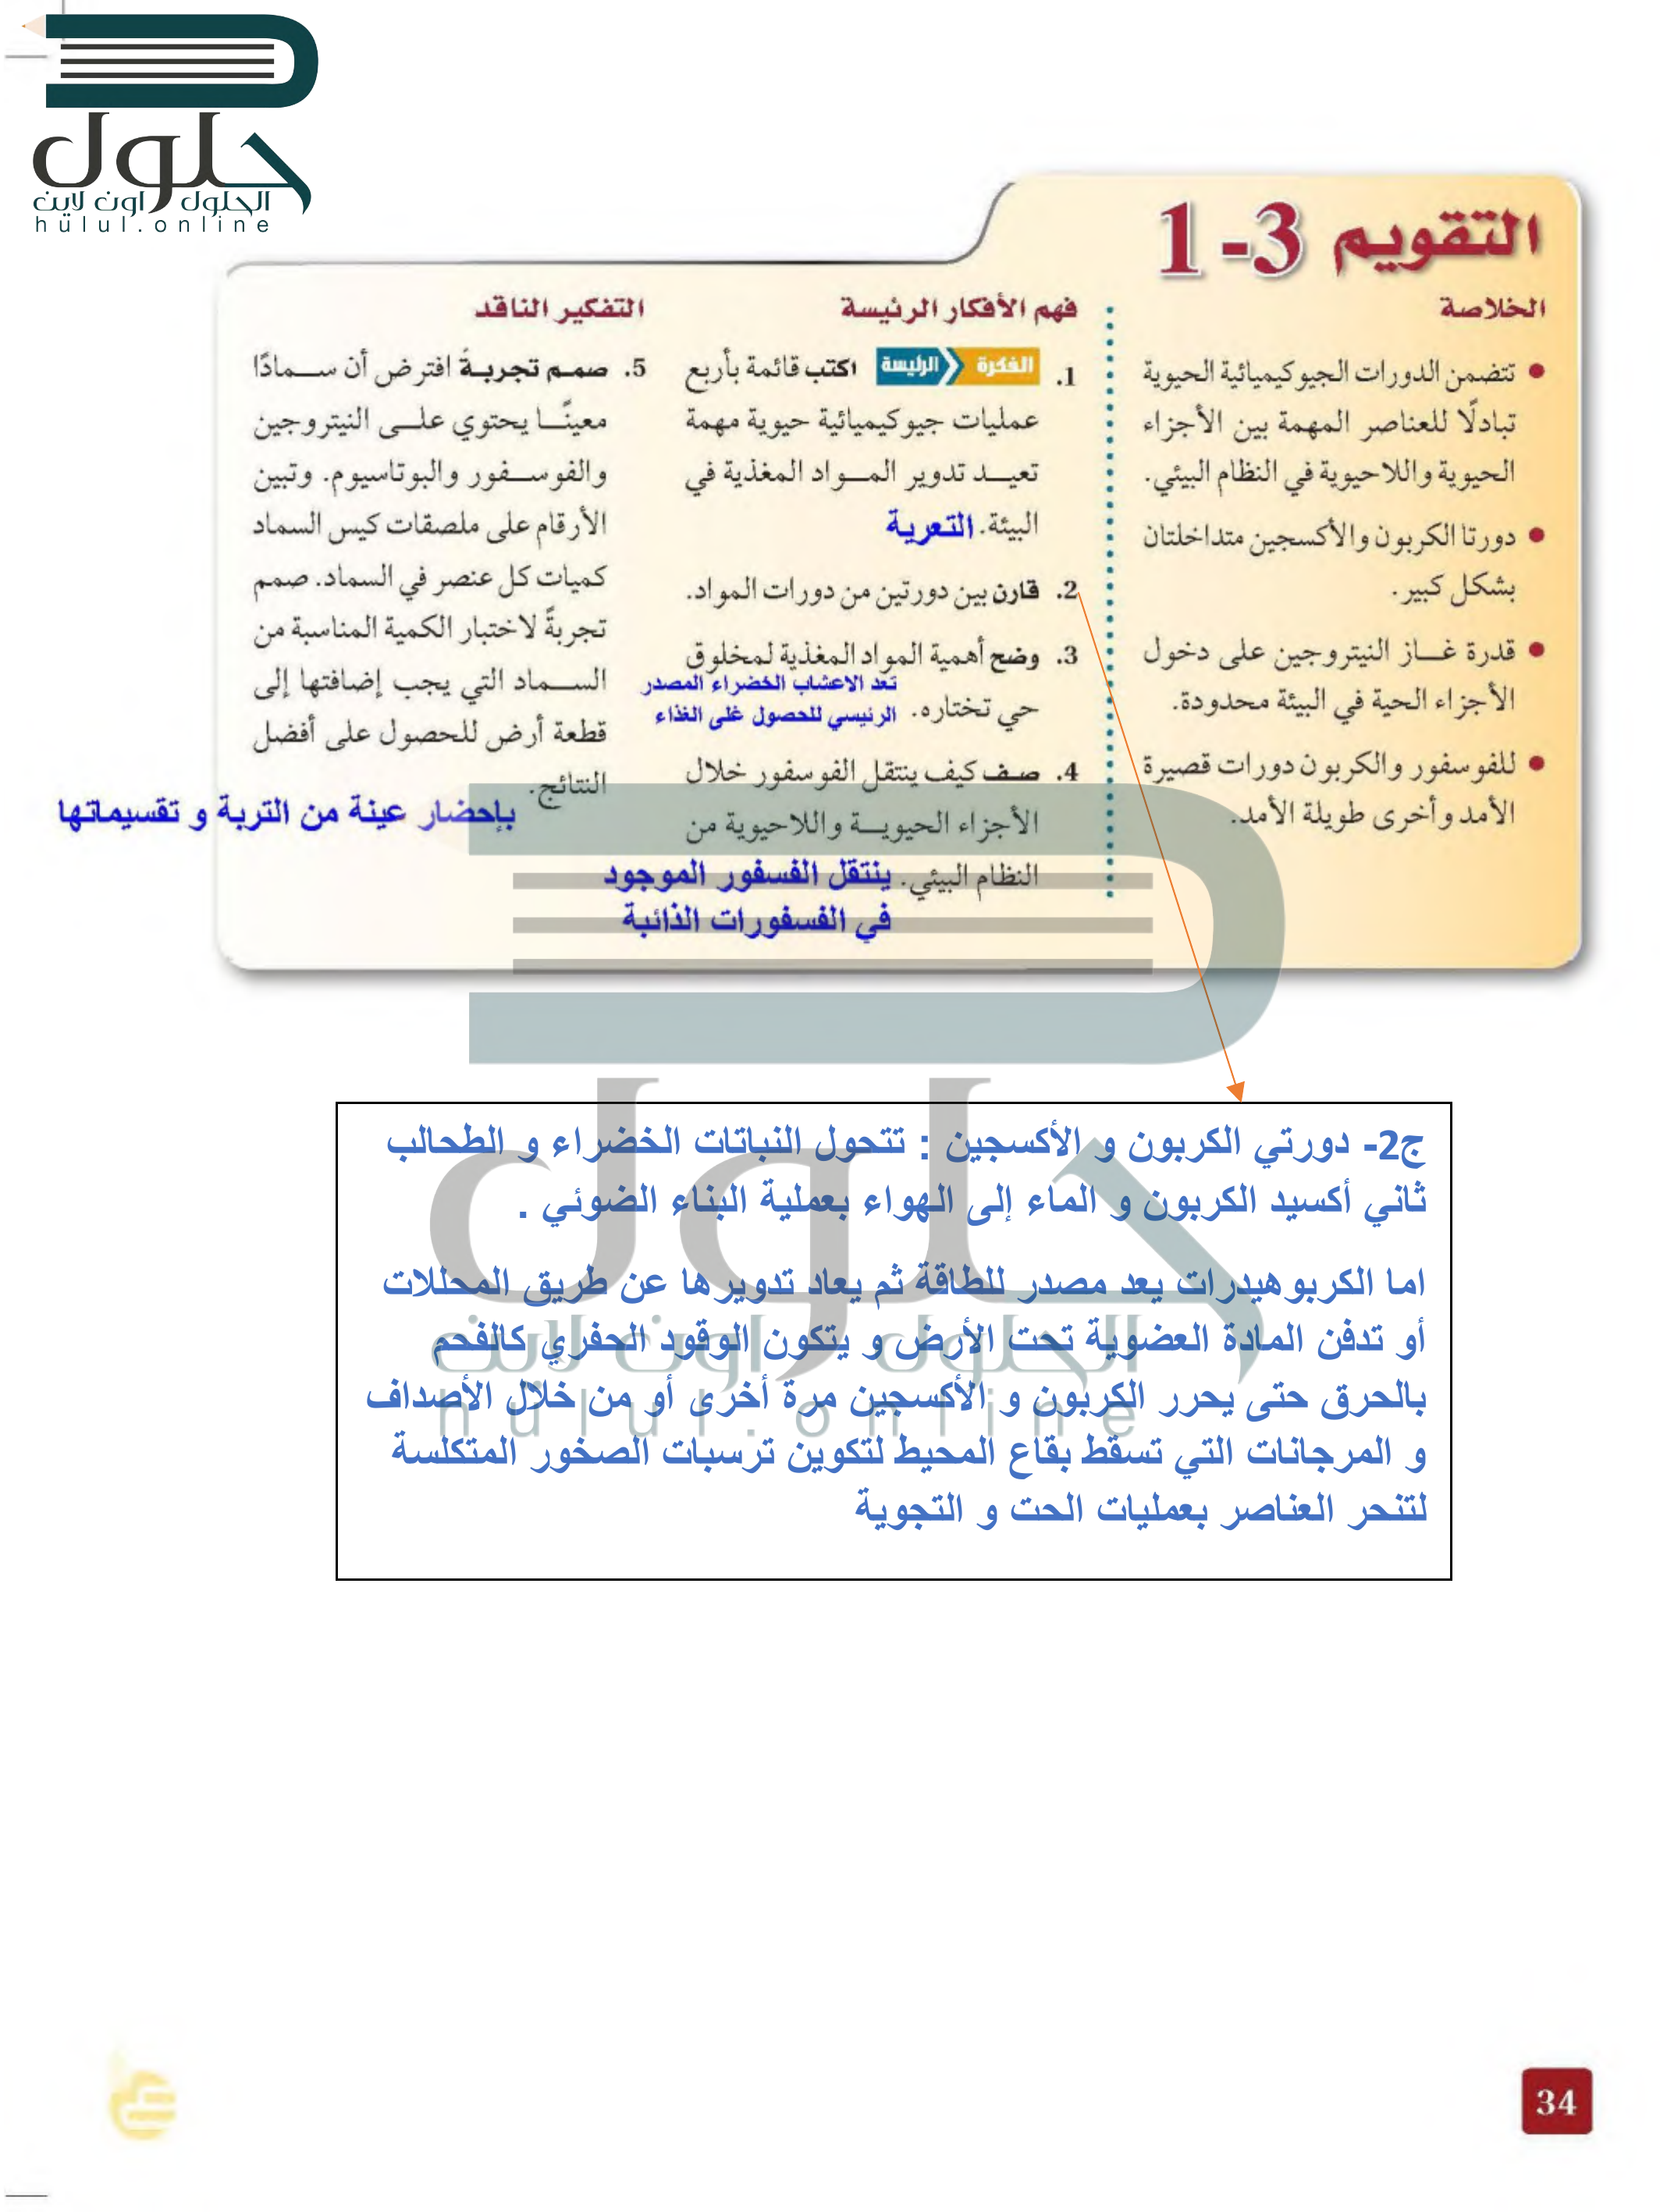 حلول
الحلول اون لاين
hulul.online
التقويم 3-1
الخلاصة
تتضمن الدورات الجيوكيميائية الحيوية
تبادلًا للعناصر المهمة بين الأجزاء
الحيوية واللاحيوية في النظام البيئي.
دورتا الكربون والأكسجين متداخلتان
بشكل كبير.
قدرة غاز النيتروجين على دخول
الأجزاء الحية في البيئة محدودة.
للفوسفور والكربون دورات قصيرة
الأمد وأخرى طويلة الأمد.
فهم الأفكار الرئيسة
1. الفكرة الرئيسة اكتب قائمة بأربع
عمليات جيوكيميائية حيوية مهمة
تعيد تدوير المواد المغذية في
البيئة. التعرية
2. قارن بين دورتين من دورات المواد.
3. وضح أهمية المواد المغذية لمخلوق
حي تختاره.
تعد الاعشاب الخضراء المصدر
الرئيسي للحصول غلى الغذاء
4. صف كيف ينتقل الفوسفور خلال
الأجزاء الحيوية واللاحيوية من
النظام البيئي. ينتقل الفسفور الموجود
في الفسفورات الذائبة
التفكير الناقد
5. صمم تجربةً افترض أن سمادًا
معينًا يحتوي على النيتروجين
والفوسفور والبوتاسيوم. وتبين
الأرقام على ملصقات كيس السماد
كميات كل عنصر في السماد. صمم
تجربةً لاختبار الكمية المناسبة من
السماد التي يجب إضافتها إلى
قطعة أرض للحصول على أفضل
النتائج.
بإحضار عينة من التربة و تقسيماتها
ج2- دورتي الكربون و الأكسجين : تتحول النباتات الخضراء و الطحالب
ثاني أكسيد الكربون و الماء إلى الهواء بعملية البناء الضوئي .
اما الكربوهيدرات يعد مصدر للطاقة ثم يعاد تدويرها عن طريق المحللات
أو تدفن المادة العضوية تحت الأرض و يتكون الوقود الحفري كالفحم
بالحرق حتى يحرر الكربون و الأكسجين مرة أخرى أو من خلال الأصداف
و المرجانات التي تسقط بقاع المحيط لتكوين ترسبات الصخور المتكلسة
لتنحر العناصر بعمليات الحت و التجوية
حلول
الحلول اون لاين
hulul.online
34